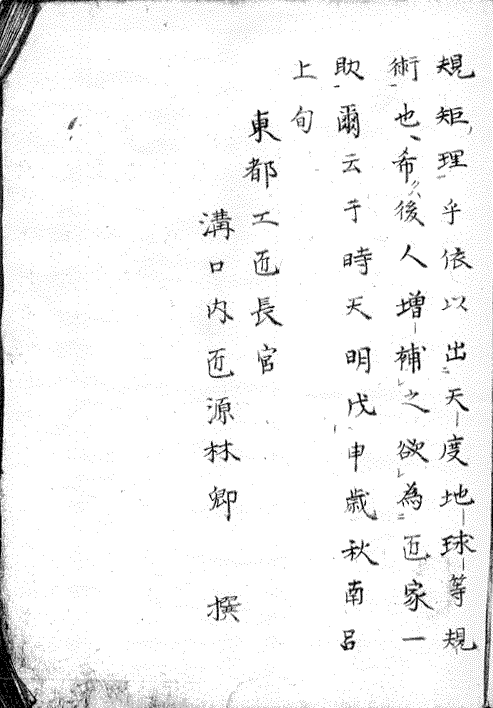 規矩理乎依以出天度地球等規
術也希クハ後人増補之欲為匠家一
助爾云于時天明戊申歳秋南呂
上旬
東都工匠長官
溝口内匠源林卿 撰